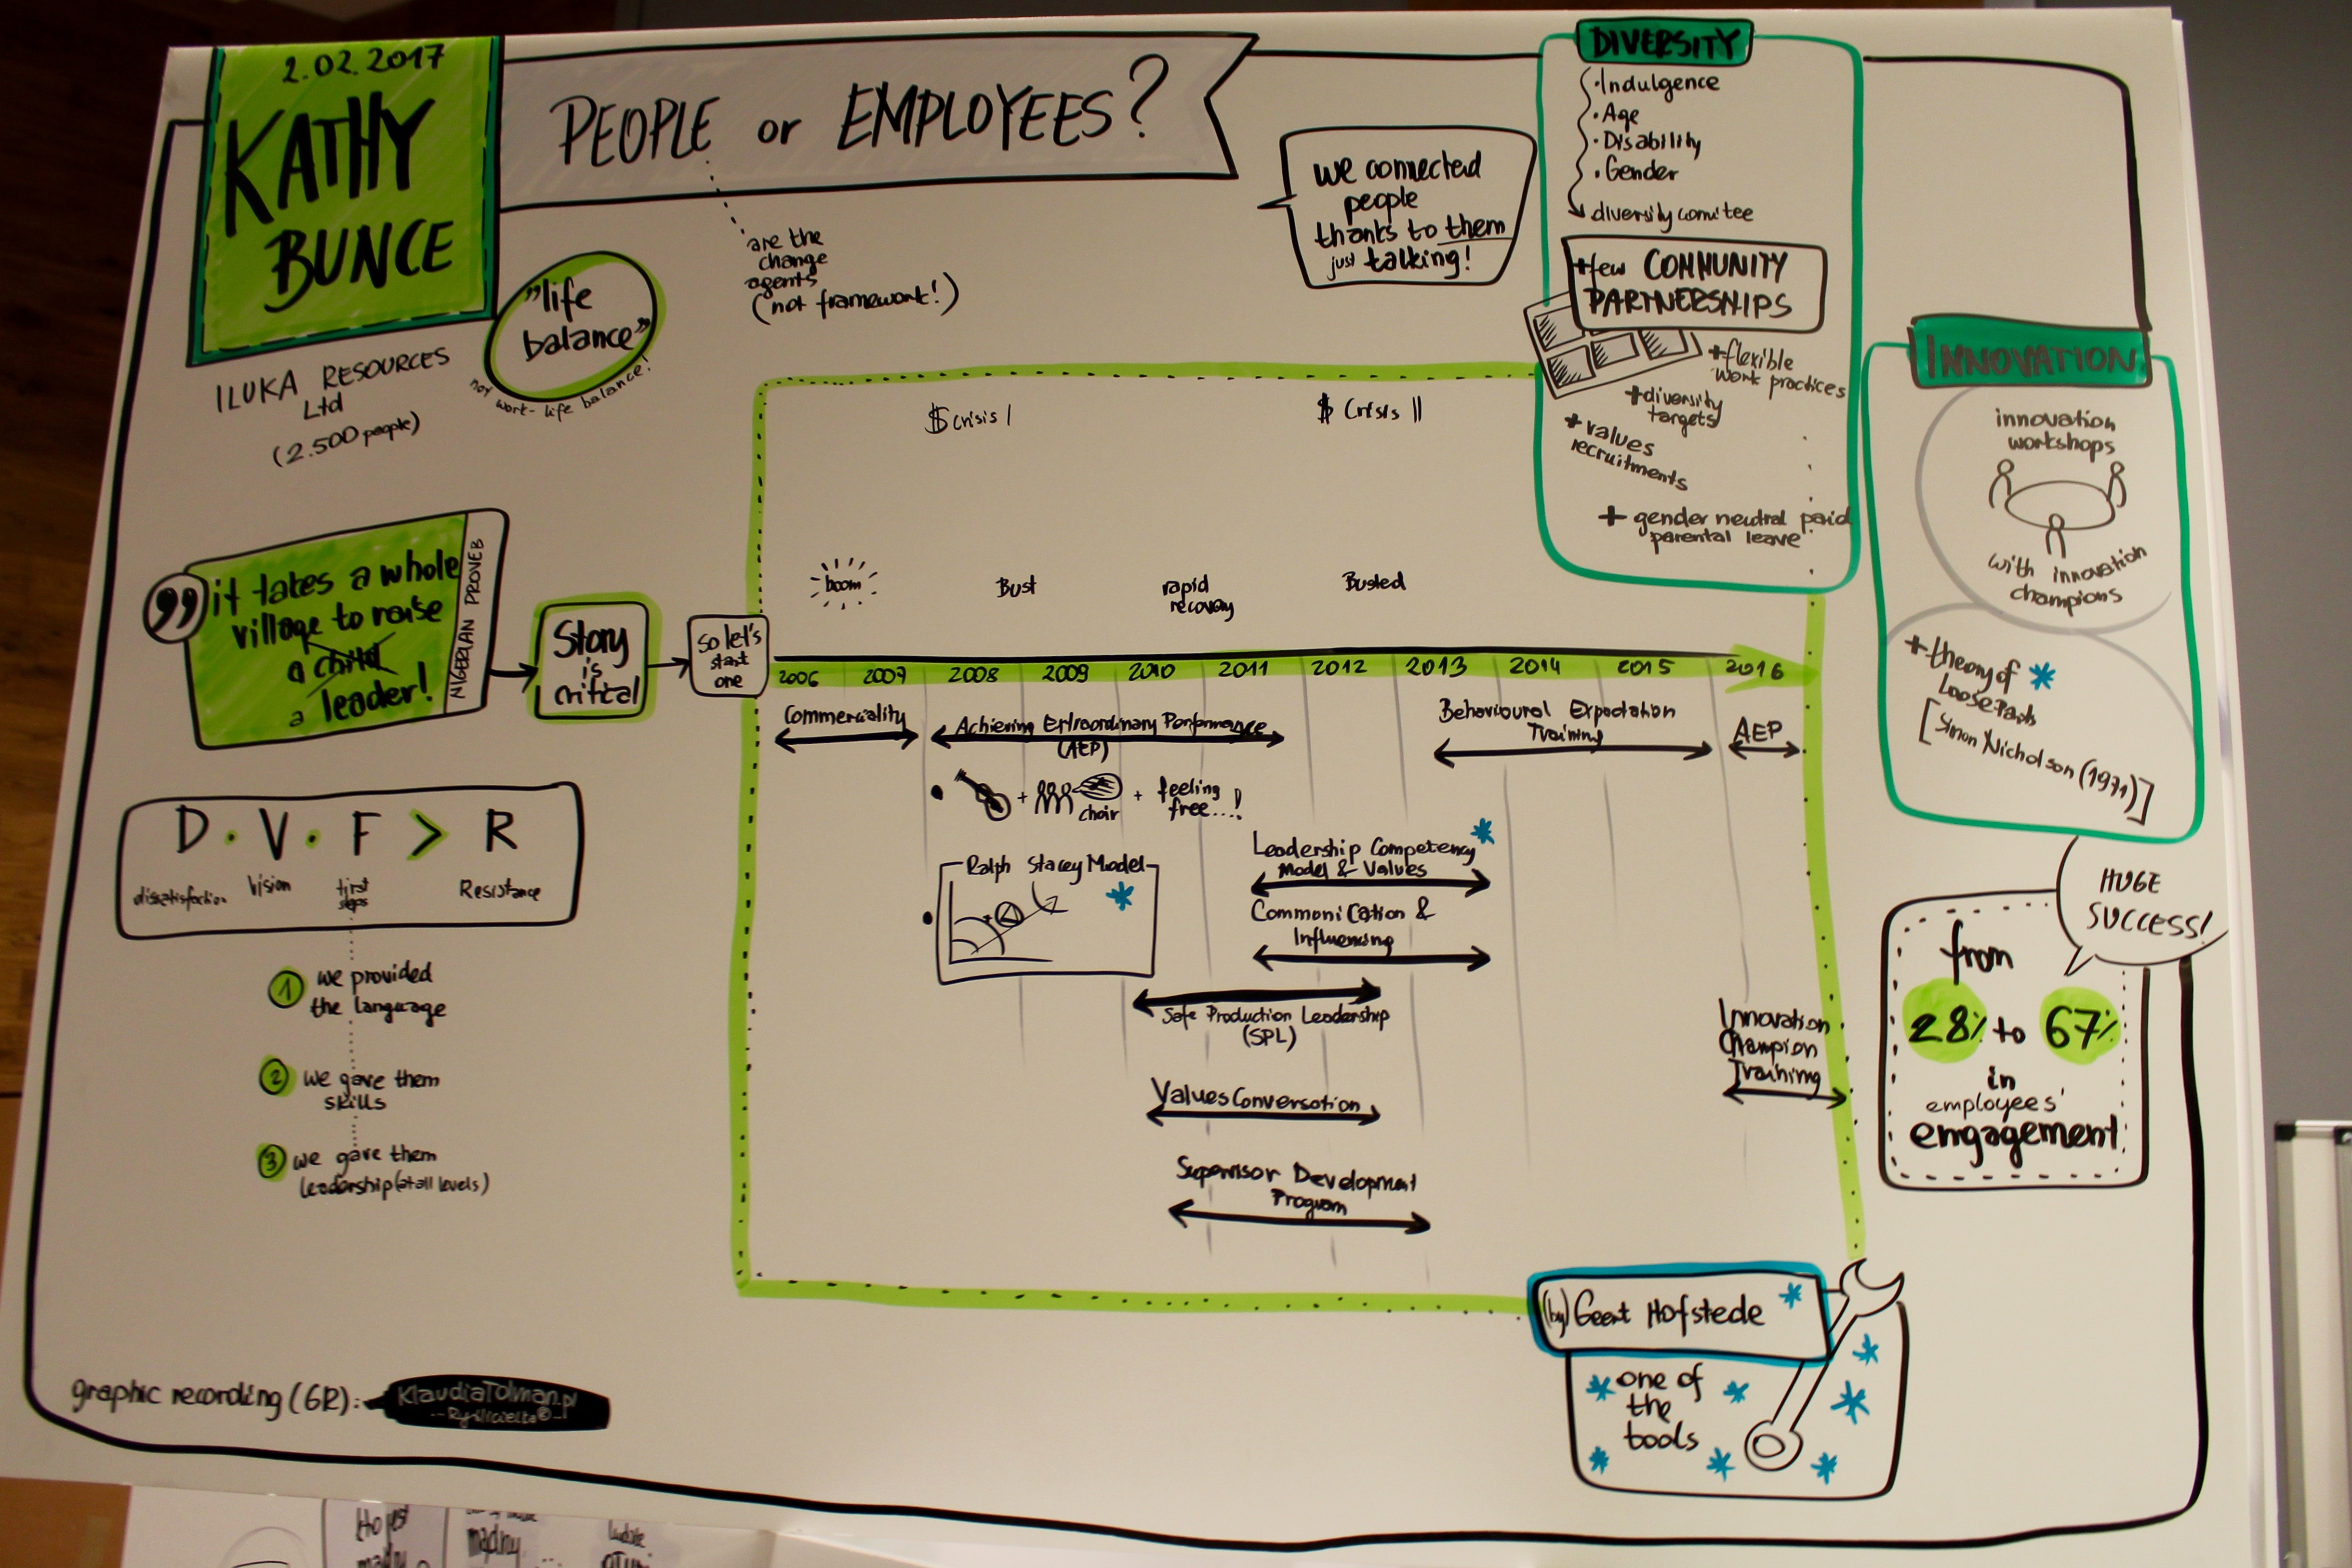 2.02.2017
KATHY
BUNCE
PEOPLE or EMPLOYEES?
are the
change
agents
(not framework!)
ILUKA RESOURCES
Ltd
(2.500 people)
"life
balance"
not work-life balance!
we connected
people
thanks to them
just talking!
DIVERSITY
·Indulgence
·Age
·Disability
·Gender
diversity comitee
+few COMMUNITY
PARTNERSHIPS
+flexible
work practices
+diversity
targets
+values
recruitments
+ gender neutral paid
parental leave
INNOVATION
innovation
workshops
with innovation
champions
+theory of
Loose Parts
[Simon Nicholson (1971)]
it takes a whole
village to raise
a child
a leader!
NIGERIAN PROVEB
Story
is
critical
So let's
start
one
$ crisis I
$ Crisis II
boom
Bust
rapid
recovery
Busted
2006 2007 2008 2009 2010 2011 2012 2013 2014 2015 2016
Commerciality
Achieving Extraordinary Performance
(AEP)
Behavioural Expectation
Training
AEP
+ choir + feeling
free...!
Ralph Stacey Model
Leadership Competency
Model & Values
Communication &
Influencing
Safe Production Leadership
(SPL)
Values Conversation
Supervisor Development
Program
Innovation
Champion
Training
D · V · F > R
dissatisfaction
Vision
first
steps
Resistance
1 we provided
the language
2 we gave them
skills
3 we gave them
leadership (at all levels)
HUGE
SUCCESS!
from
28% to 67%
in
employees'
engagement
(by) Geert Hofstede
one of
the
tools
graphic recording (GR):
KlaudiaTolman.pl
madmy